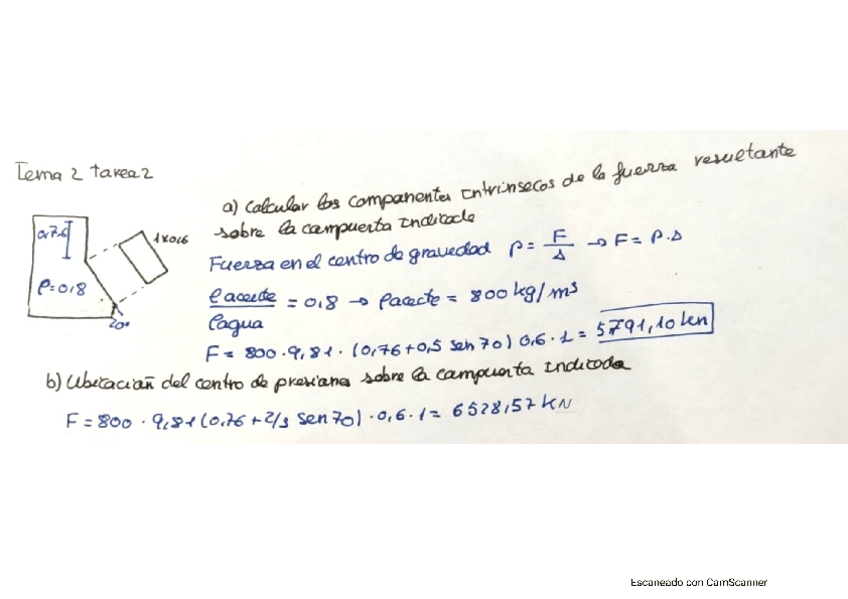 Tema 2 tarea 2
a) Calcular los componentes intrínsecos de la fuerza resultante
sobre la campuerta indicada
0,76
1x0,6
ρ=0,8
20°
Fuerza en el centro de gravedad P = F/A → F = P.A
ρaceite/ρagua = 0,8 → ρaceite = 800 kg/m3
F = 800 · 9,81 · (0,76+0,5 sen 70) 0,6 · 1 = 5791,10 kn
b) Ubicación del centro de presiones sobre la campuerta indicada
F = 800 · 9,81 (0,76 + 2/3 sen 70) · 0,6 · 1 = 6528,57 kN
Escaneado con CamScanner